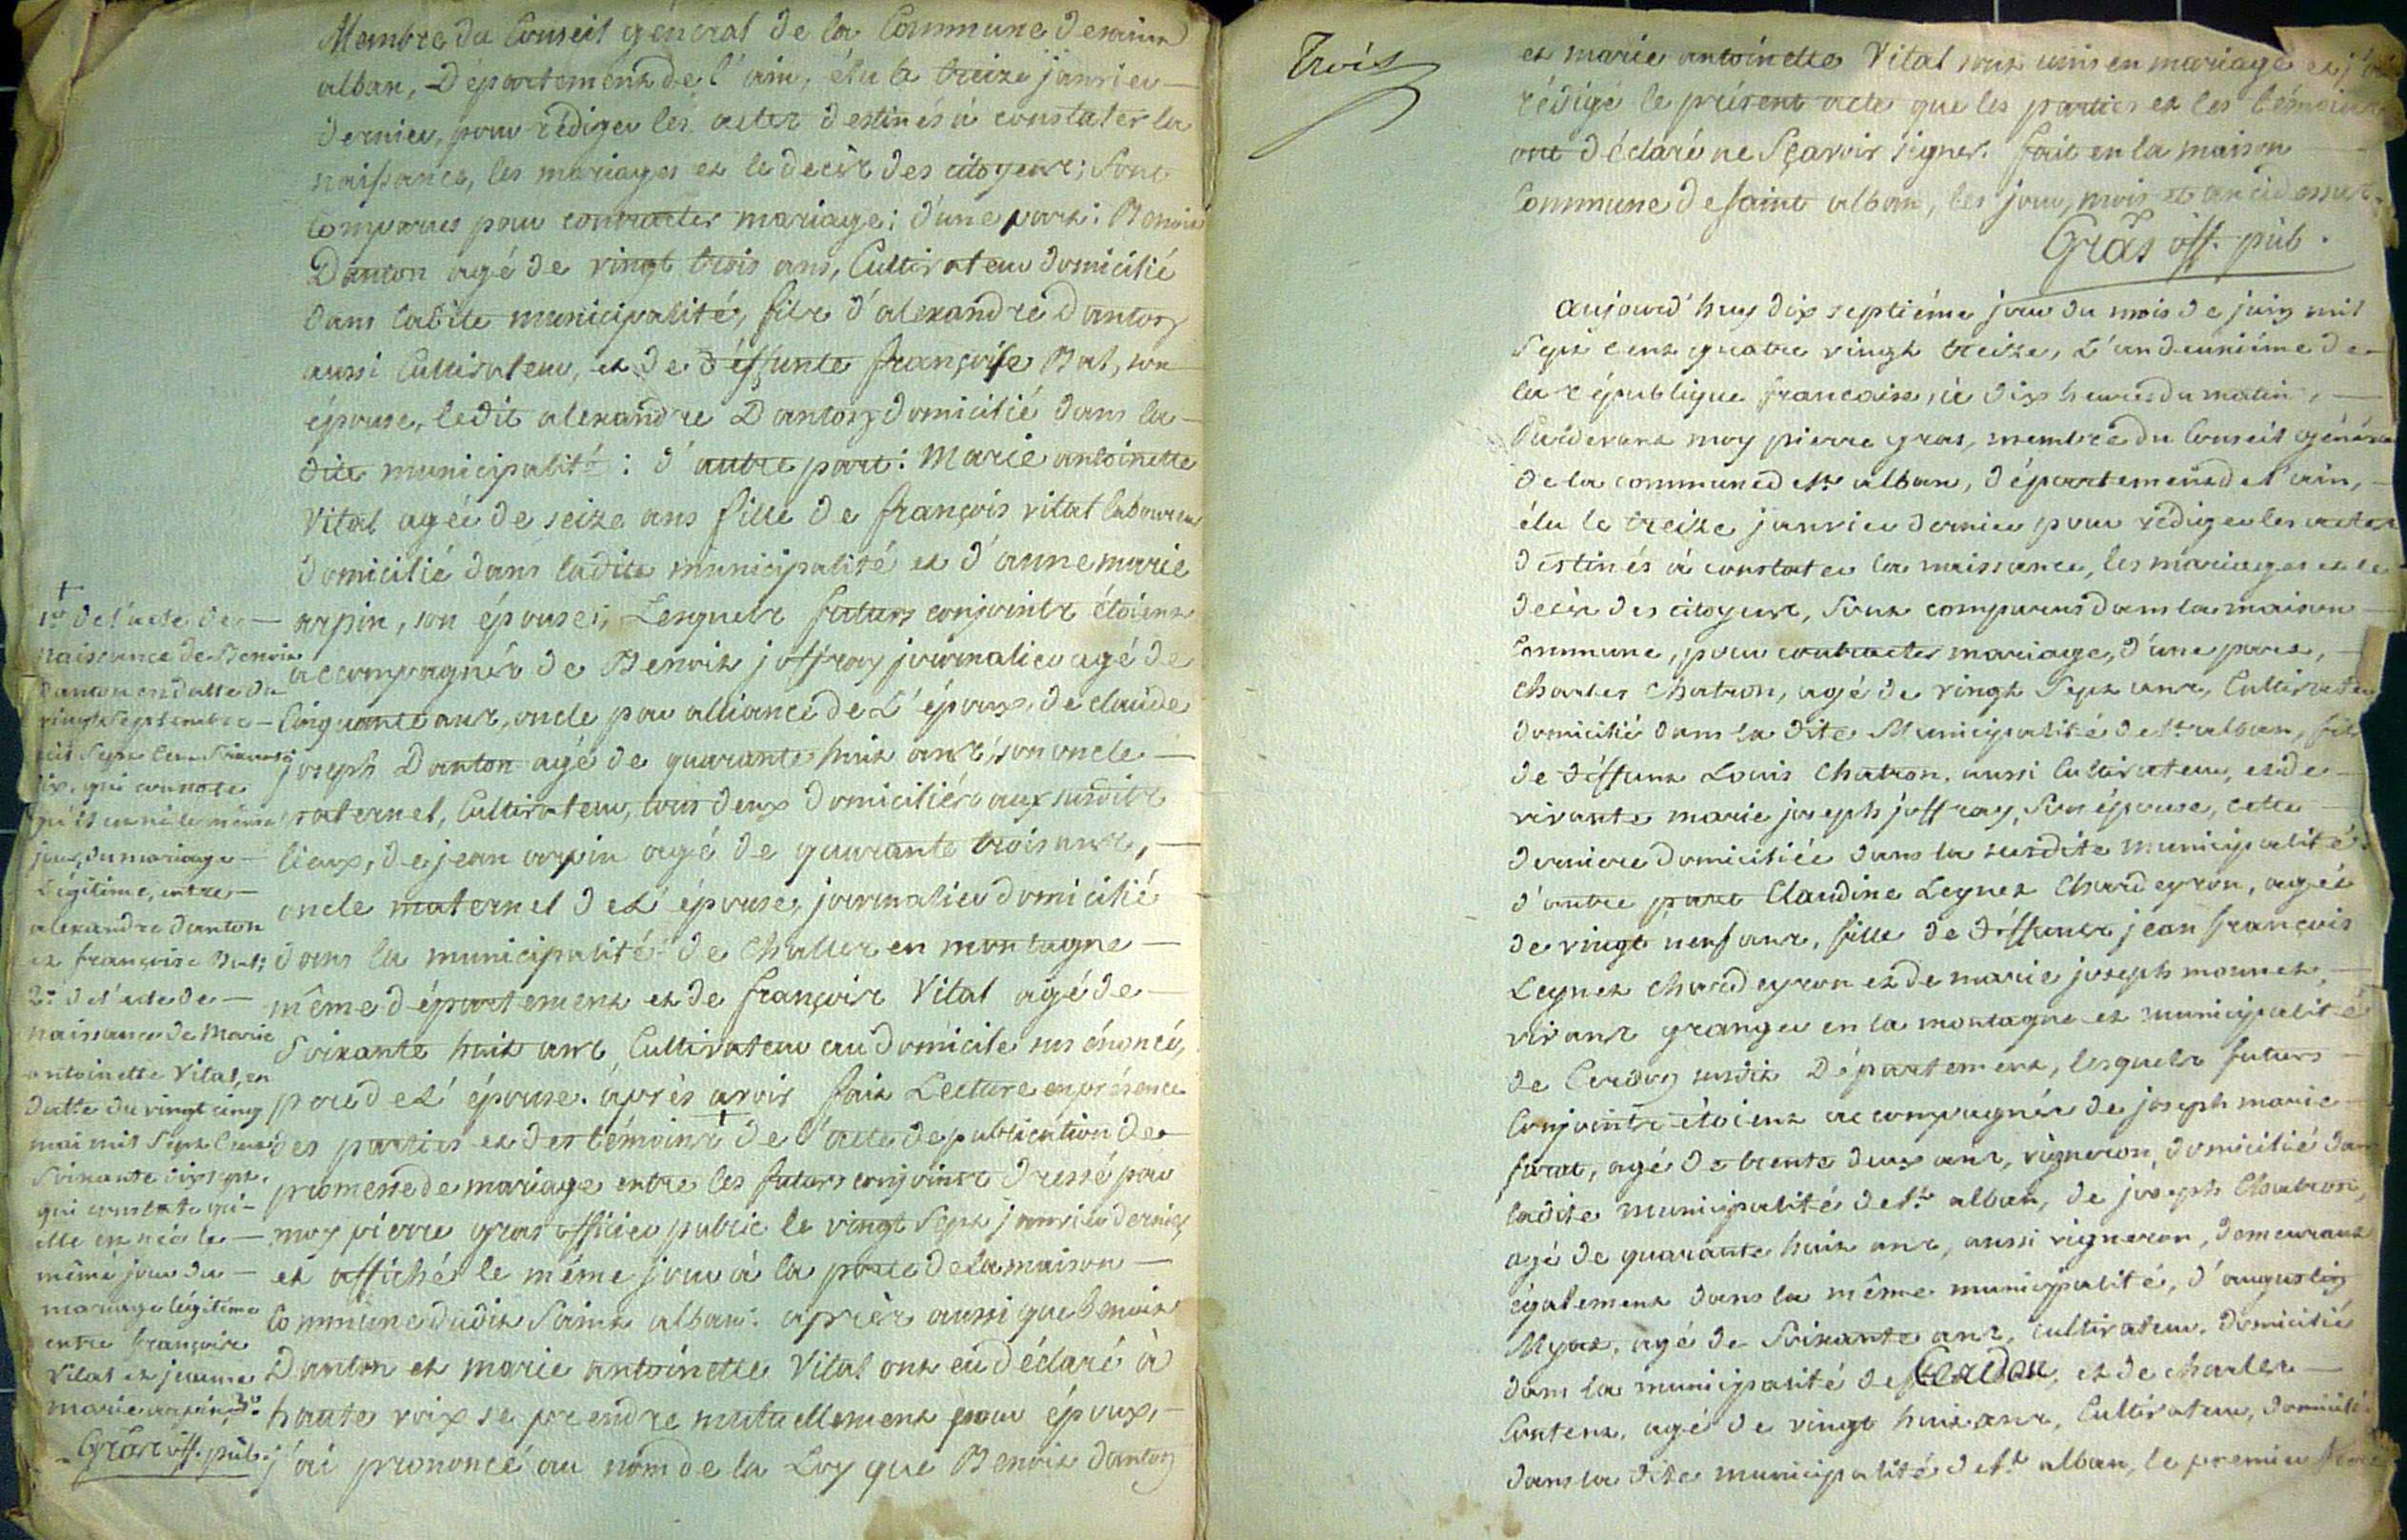 Membre du Conseil général de la Commune de saint
alban, Département de l'ain, élu le treize janvier
dernier, pour rédiger les actes destinés à constater la
naissance, les mariages et le decès des citoyens; Sont
Comparus pour contracter mariage: d'une part: Benoit
Danton agé de vingt trois ans, Cultivateur domicilié
dans ladite municipalité, fils d'alexandre Danton
aussi Cultivateur, et de déffunte françoise Bat, son
épouse, ledit alexandre Danton domicilié dans la
dite municipalité: d'autre part: Marie antoinette
Vital agée de seize ans fille de françois vital laboureur
domicilié dans ladite municipalité et d'anne marie
arpin, son épouse; Lesquels futurs conjoints étoient
accompagnés de Benoit joffray journalier agé de
Cinquante ans, oncle par alliance de L'époux, de claude
joseph Danton agé de quarante huit ans, son oncle
paternel, Cultivateur, tous deux domiciliés aux susdits
lieux, de jean arpin agé de quarante trois ans,
oncle maternel de L'épouse, journalier domicilié
dans la municipalité de Challes en montagne
même département et de françois Vital agé de
Soixante huit ans Cultivateur au domicile sus énoncé,
pere de L'épouse. après avoir fait Lecture en présence
des parties et des témoins de l'acte de publication de
promesse de mariage entre les futurs conjoints dressé par
moy pierre gras officier public le vingt sept janvier dernier
et affiché le même jour à la porte de la maison
Commune dudit Saint alban: après aussi que benoit
Danton et marie antoinette Vital ont eu déclaré à
haute voix se prendre mutuellement pour époux,
j'ai prononcé au nom de la Loy que Benoit danton
1º de l'acte de
naissance de Benoit
Danton en datte du
vingt septembre
mil sept cent soixante
dix, qui connote
qu'il est né le même
jour, du mariage
Légitime, entre
alexandre danton
et françoise Bat;
2º de l'acte de
naissance de Marie
antoinette Vital, en
datte du vingt cinq
mai mil sept cent
soixante dix sept,
qui constate qu'
elle est née le
même jour du
mariage légitime
entre françois
Vital et jeanne
marie arpin, 3º
Gras off. pub.
Trois
et marie antoinette Vital sont unis en mariage et j'ai
rédigé le présent acte que les parties et les témoins
ont déclaré ne Sçavoir signer. fait en la maison
Commune de saint alban, les jour, mois et an cidessus.
Gras off. pub.
aujourd'huy dix septiéme jour du mois de juin mil
Sept cent quatre vingt treize, L'an deuxiéme de
la république françoise, à dix heures du matin,
Pardevant moy pierre gras, membre du Conseil général
de la commune de st alban, département de l'ain,
élu le treize janvier dernier pour rédiger les actes
destinés à constater la naissance, les mariages et le
decès des citoyens, Sont comparus dans la maison
Commune, pour contracter mariage, d'une part,
Charles Chatron, agé de vingt Sept ans, Cultivateur
domicilié dans la dite Municipalité de st alban, fils
de déffunt Louis Chatron, aussi Cultivateur, et de
vivante marie joseph joffray, Son épouse, cette
derniere domiciliée dans la susdite municipalité:
d'autre part Claudine Leynet Chardeyron, agée
de vingt neuf ans, fille de déffunts jean françois
Leynet chardeyron et de marie joseph mounet,
vivant granger en la montagne et municipalité
de Cerdon susdit Département, lesquels futurs
Conjoints étoient accompagnés de joseph marie
favat, agé de trente deux ans, vigneron, domicilié dans
ladite municipalité de st alban, de joseph Chatron,
agé de quarante huit ans, aussi vigneron, demeurant
également dans la même municipalité, d'augustin
Myat, agé de Soixante ans, cultivateur, domicilié
dans la municipalité de Cerdon, et de charles
Contens, agé de vingt huit ans, Cultivateur, domicilié
dans la dite municipalité de st alban, le premier